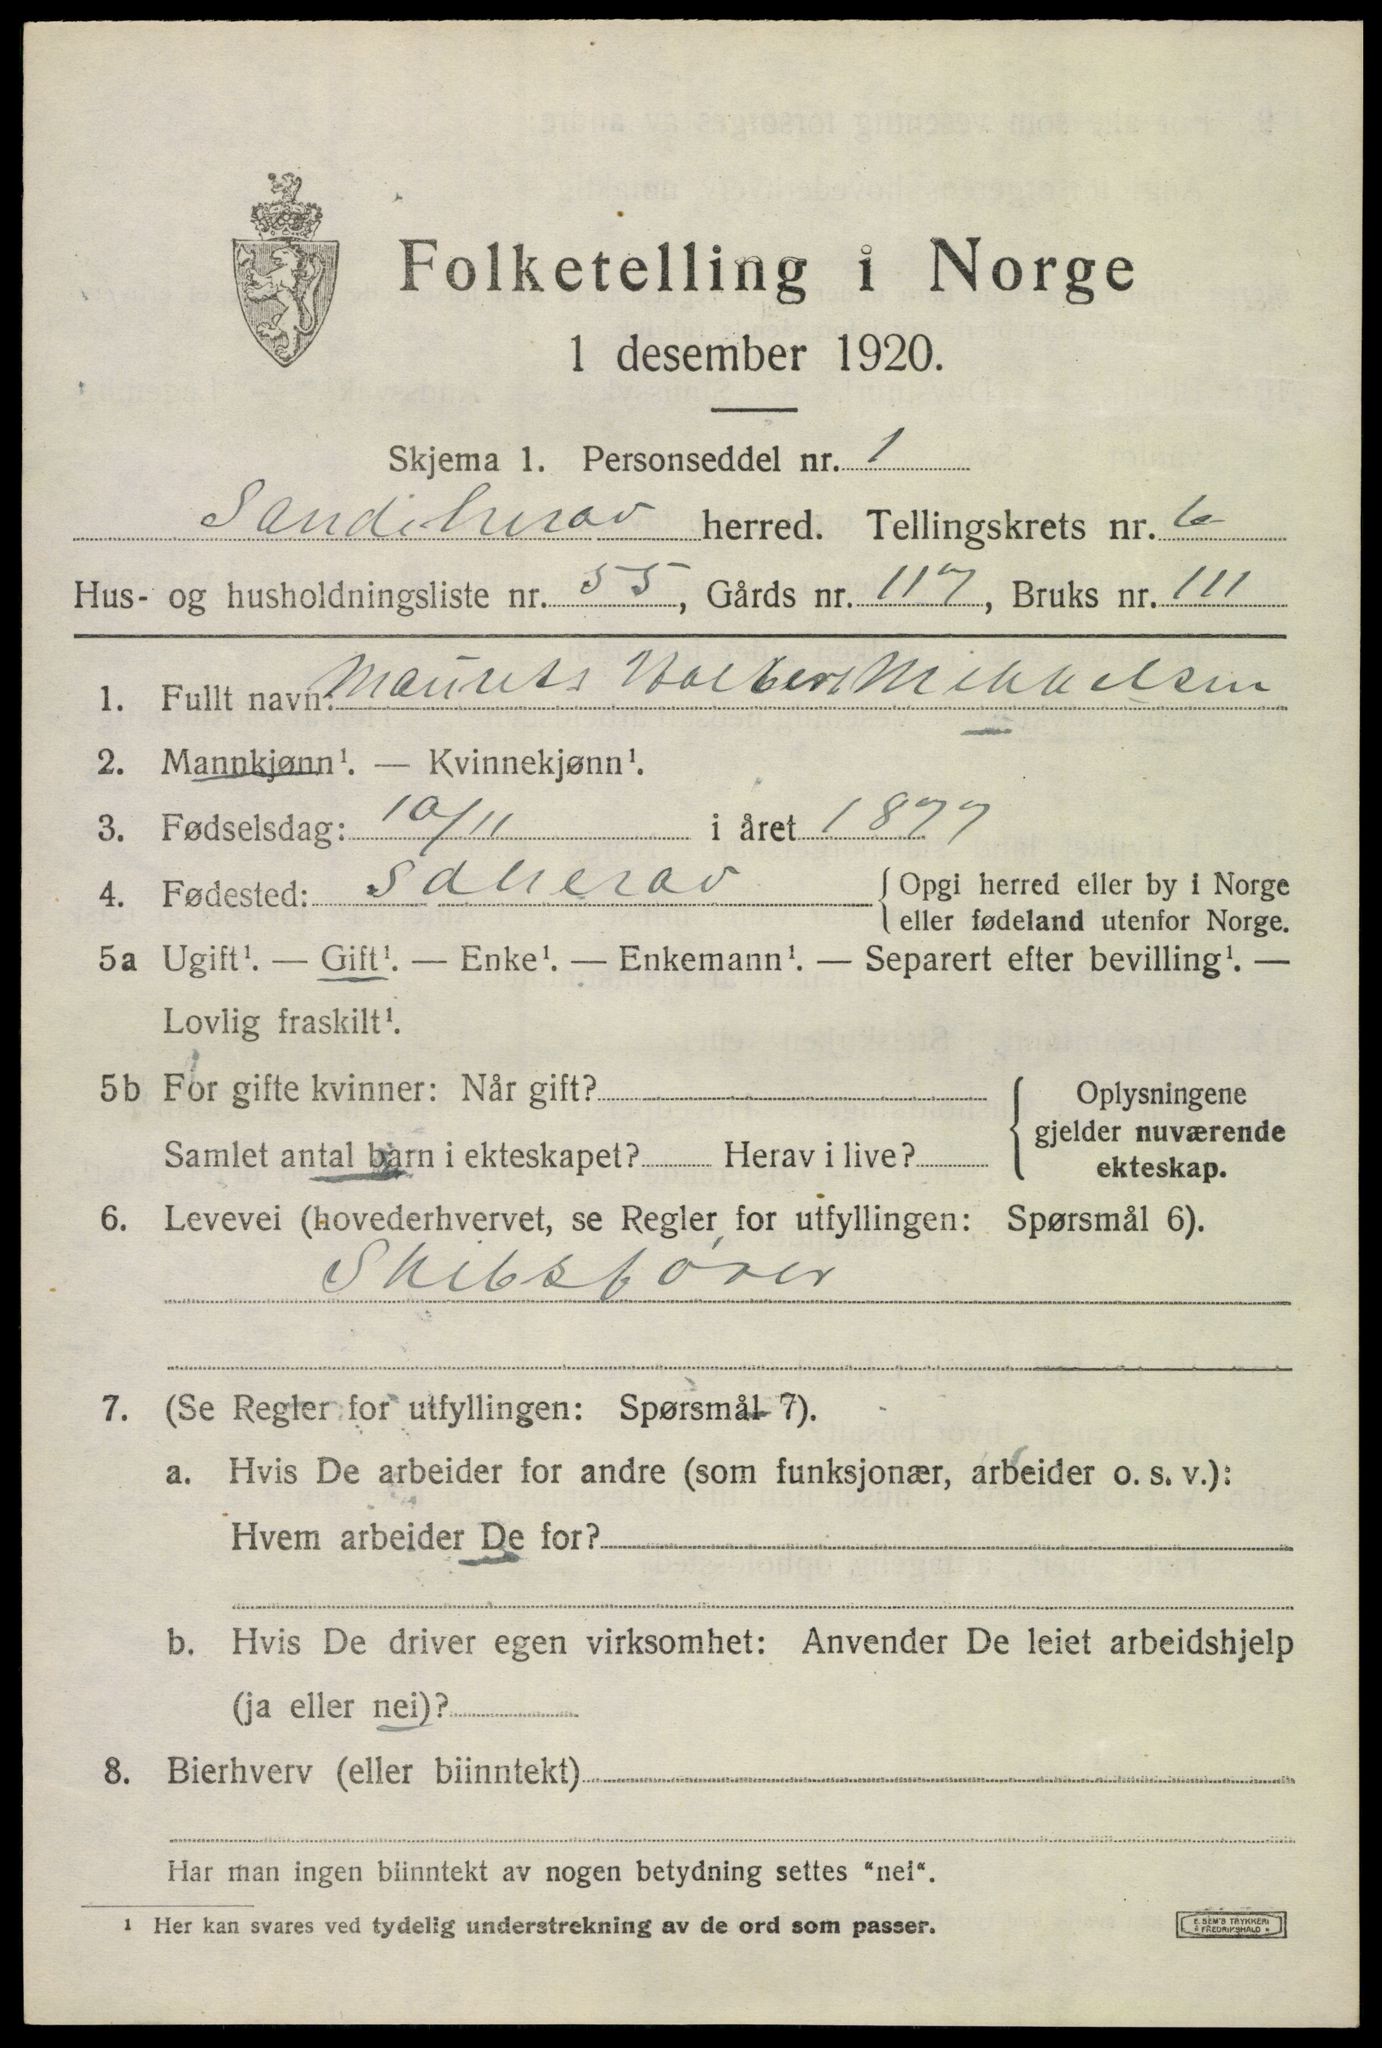 Folketelling i Norge
1 desember 1920.
Skjema 1. Personseddel nr. 1
Sandeherav herred. Tellingskrets nr. 6
Hus- og husholdningsliste nr. 55, Gårds nr. 117, Bruks nr. 111
1. Fullt navn: Mikkelsen
2. Mannkjønn¹. — Kvinnekjønn¹.
3. Fødselsdag: 10/11 i året 1877
4. Fødested: Sdherav { Opgi herred eller by i Norge
eller fødeland utenfor Norge.
5a Ugift¹. — Gift¹. — Enke¹. — Enkemann¹. — Separert efter bevilling¹. —
Lovlig fraskilt¹.
5b For gifte kvinner: Når gift? { Oplysningene
gjelder nuværende
Samlet antal barn i ekteskapet? Herav i live?
ekteskap.
6. Levevei (hovederhvervet, se Regler for utfyllingen: Spørsmål 6).
Skibsfører
7. (Se Regler for utfyllingen: Spørsmål 7).
a. Hvis De arbeider for andre (som funksjonær, arbeider o. s. v.):
Hvem arbeider De for?
b. Hvis De driver egen virksomhet: Anvender De leiet arbeidshjelp
(ja eller nei)?
8. Bierhverv (eller biinntekt)
Har man ingen biinntekt av nogen betydning settes "nei".
¹ Her kan svares ved tydelig understrekning av de ord som passer.
E. SEM'S TRYKKERI
FREDRIKSHALD